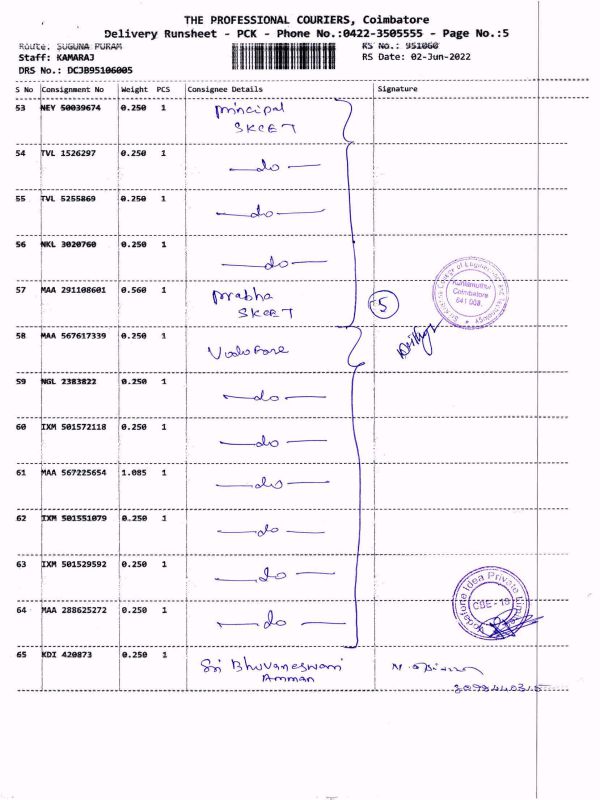 THE PROFESSIONAL COURIERS, Coimbatore
Delivery Runsheet - PCK - Phone No.:0422-3505555 - Page No.:5
Route: SUGUNA PURAM
RS No.: 951060
Staff: KAMARAJ
RS Date: 02-Jun-2022
DRS No.: DCJB95106005
S No Consignment No Weight PCS Consignee Details Signature
53 NEY 50039674 0.250 1 principal
SKCET
54 TVL 1526297 0.250 1 —do—
55 TVL 5255869 0.250 1 —do—
56 NKL 3020760 0.250 1 —do—
57 MAA 291108601 0.560 1 prabha
SKCET
5
Kuniamuthur
Coimbatore
641 008.
58 MAA 567617339 0.250 1 Vodofone
59 NGL 2383822 0.250 1 —do—
60 IXM 501572118 0.250 1 —do—
61 MAA 567225654 1.085 1 —do—
62 IXM 501551079 0.250 1 —do—
63 IXM 501529592 0.250 1 —do—
64 MAA 288625272 0.250 1 —do—
Vodafone Idea Private Limited
CBE - 18
65 KDI 420873 0.250 1 Sri Bhuvaneswari
Amman